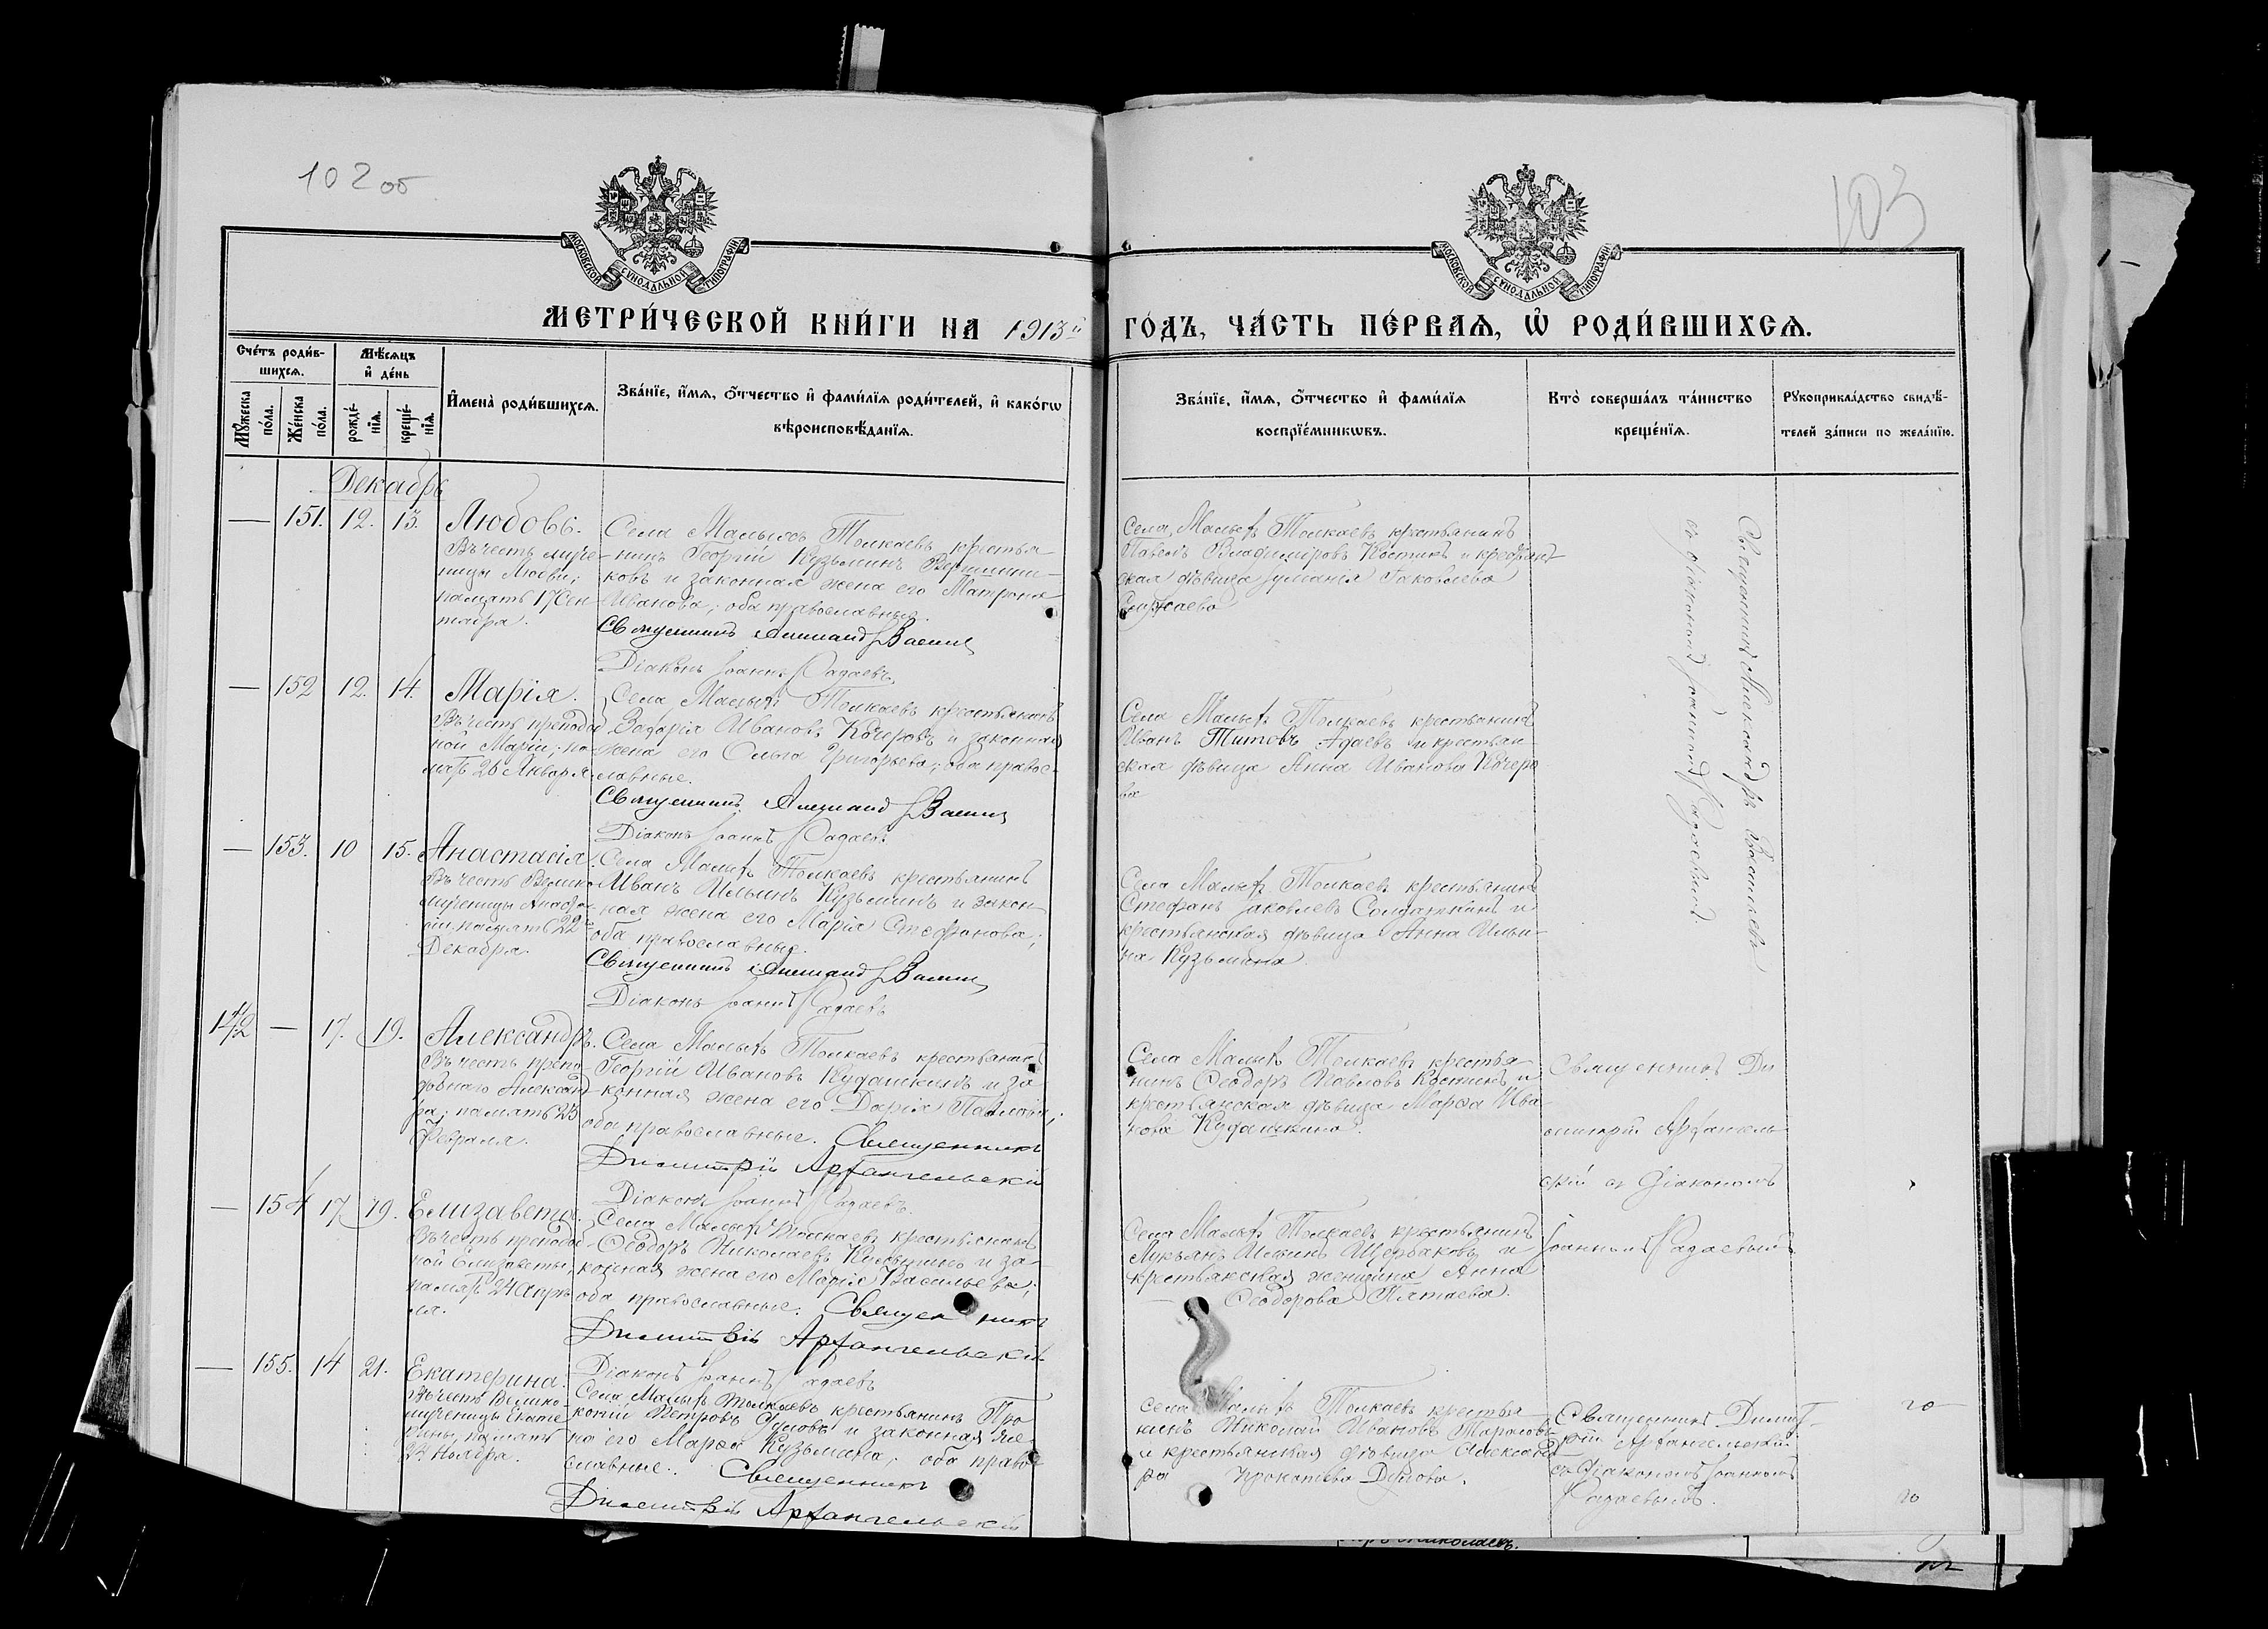 102 об
103
МОСКОВСКОЙ СѴНОДАЛЬНОЙ ТИПОГРАФІИ
МОСКОВСКОЙ СѴНОДАЛЬНОЙ ТИПОГРАФІИ
МЕТРИ́ЧЕСКОЙ КНИ́ГИ НА 1913й ГО́ДЪ, ЧА́СТЬ ПЕ́РВАѦ, Ѡ҆ РОДИ́ВШИХСѦ.
Сче́тъ роди́в-
шихсѧ.
Мѣ́сѧцъ
и҆ де́нь
Мꙋ́жеска
по́ла.
Же́нска
по́ла.
рожде́-
нїѧ.
креще́-
нїѧ.
И҆мена̀ роди́вшихсѧ.
Зва́нїе, и҆́мѧ, ѻ҆́тчество и҆ фами́лїѧ роди́телей, и҆ како́гѡ
вѣроисповѣ́данїѧ.
Зва́нїе, и҆́мѧ, ѻ҆́тчество и҆ фами́лїѧ
воспрїе́мникѡвъ.
Кто̀ соверша́лъ та́инство
креще́нїѧ.
Рꙋкоприкла́дство свидѣ́-
телей за́писи по жела́нїю.
Декабрь
— 151. 12. 13. Любовь.
Въ честь муче-
ницы Любви;
память 17 Сен-
тября.
Села Малыхъ Толкаевъ крестья-
нинъ Георгій Кузьминъ Вершини-
ковъ и законная жена его Матрона
Иванова; оба православные.
Священникъ
Діаконъ Іоаннъ Садаевъ
Села Малыхъ Толкаевъ крестьянинъ
Павелъ Владиміровъ Костинъ и крестьян-
ская дѣвица Іаковлева
Священникъ Александръ Васильевъ
съ діакономъ Іоанномъ Садаевымъ.
— 152 12. 14. Марія.
Въ честь преподоб-
ной Маріи; па-
мять 26 Января.
Села Малыхъ Толкаевъ крестьянинъ
Захарія Ивановъ Кочеровъ и законная
жена его Ольга Григорьева; оба правос-
лавные.
Священникъ
Діаконъ Іоаннъ Садаевъ
Села Малыхъ Толкаевъ крестьянинъ
Иванъ Титовъ Адаевъ и крестьян-
ская дѣвица Анна Иванова Кочеро-
ва
— 153. 10 15. Анастасія.
Въ честь Велико-
мученицы Анаста-
сіи, память 22го
Декабря.
Села Малыхъ Толкаевъ крестьянинъ
Иванъ Ильинъ Кузьминъ и закон-
ная жена его Марія Стефанова;
оба православные.
Священникъ
Діаконъ Іоаннъ Садаевъ
Села Малыхъ Толкаевъ крестьянинъ
Стефанъ Іаковлевъ Солдаткинъ и
крестьянская дѣвица Анна Ильи-
на Кузьмина
142 — 17. 19. Александръ.
Въ честь препо-
добнаго Александ-
ра; память 23
Февраля.
Села Малыхъ Толкаевъ крестьянинъ
Георгій Ивановъ Кудашкинъ и за-
конная жена его Дарія Павлова;
оба православные. Священникъ
Димитрій Архангельскій
Діаконъ Іоаннъ Садаевъ.
Села Малыхъ Толкаевъ крестья-
нинъ Ѳеодоръ Павловъ Костинъ и
крестьянская дѣвица Марѳа Ива-
нова Кудашкина.
Священникъ Ди-
митрій Архангель-
скій съ діакономъ
Іоанномъ Садаевымъ
— 154 17 19. Елизавета.
Въ честь преподоб-
ной Елизаветы,
память 24 Апрѣ-
ля.
Села Малыхъ Толкаевъ крестьянинъ
Ѳеодоръ Николаевъ и за-
конная жена его Марія Васильева;
оба православные. Священникъ
Димитрій Архангельскій
Діаконъ Іоаннъ Садаевъ
Села Малыхъ Толкаевъ крестьянинъ
Лукьянъ Ильинъ Щербаковъ и
крестьянская женщина Анна
Ѳеодорова Пятаева.
— 155. 14 21. Екатерина.
Въ честь Велико-
мученицы Екате-
рины, память
24 Ноября.
Села Малыхъ Толкаевъ крестьянинъ Про-
копій Петровъ и законная же-
на его Марѳа Кузьмина; оба право-
славные. Священникъ
Димитрій Архангельскій
Села Малыхъ Толкаевъ крестья-
нинъ Николай Ивановъ
и крестьянская дѣвица Александ-
ра
Священникъ Димит-
рій Архангельскій
съ діакономъ Іоанномъ
Садаевымъ.